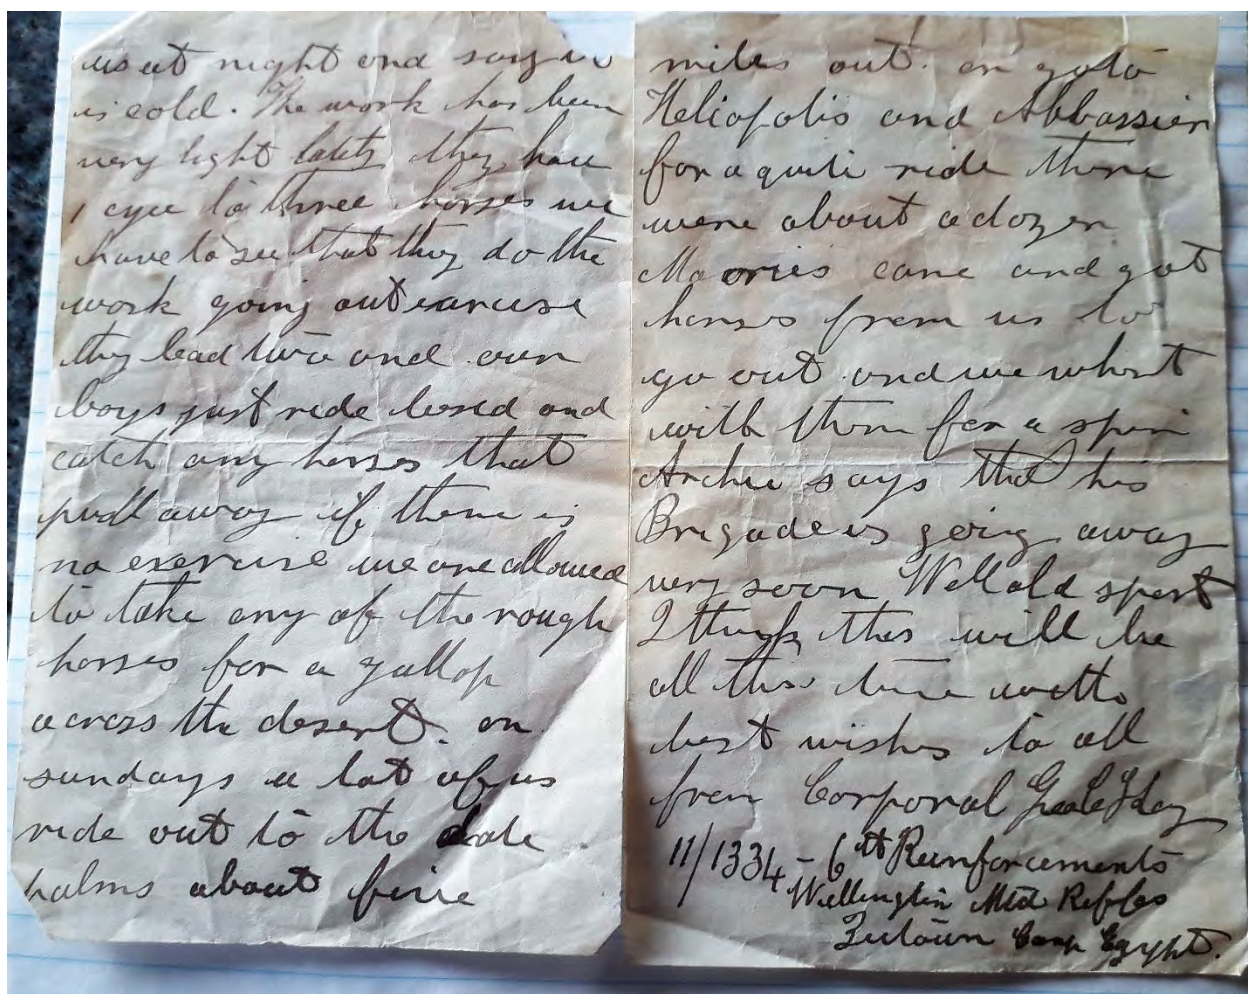 us at night and say it
is cold. The work has been
very light lately they have
1 gyee to three horses we
have to see that they do the
work going out exercise
they lead two and our
boys just ride and
catch any horses that
pull away if there is
no exercise we are allowed
to take any of the rough
horses for a gallop
across the desert. on
sundays a lot of us
ride out to the date
palms about five
miles out. or go to
Heliopolis and Abbassier
for a quite ride there
were about a dozen
Maories came and got
horses from us to
go out and we whent
with them for a spin
Archie says that his
Brigade is going away
very soon Well old sport
I think this will be
all this time with
best wishes to all
from Corporal
11/1334 - 6th Reinforcements
Wellington Mtd Rifles
Zeitoun Camp Egypt.